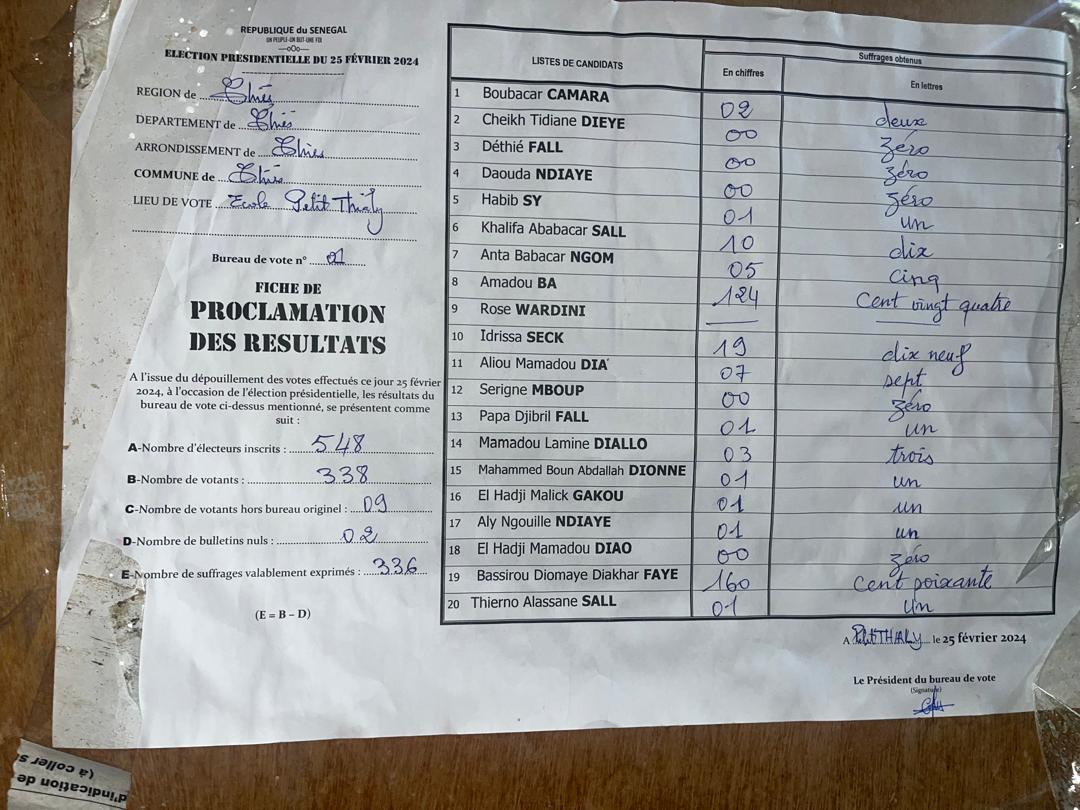 REPUBLIQUE du SENEGAL
UN PEUPLE-UN BUT-UNE FOI
---oOo---
ELECTION PRESIDENTIELLE DU 25 FÉVRIER 2024
REGION de Thiès
DEPARTEMENT de Thiès
ARRONDISSEMENT de Thiès
COMMUNE de Thiès
LIEU DE VOTE Ecole Petit Thialy
Bureau de vote n° 01
FICHE DE
PROCLAMATION
DES RESULTATS
A l'issue du dépouillement des votes effectués ce jour 25 février
2024, à l'occasion de l'élection présidentielle, les résultats du
bureau de vote ci-dessus mentionné, se présentent comme
suit :
A-Nombre d'électeurs inscrits : 548
B-Nombre de votants : 338
C-Nombre de votants hors bureau originel : 09
D-Nombre de bulletins nuls : 02
E-Nombre de suffrages valablement exprimés : 336
(E = B – D)
LISTES DE CANDIDATS Suffrages obtenus
En chiffres En lettres
1 Boubacar CAMARA 02 deux
2 Cheikh Tidiane DIEYE 00 zéro
3 Déthié FALL 00 zéro
4 Daouda NDIAYE 00 zéro
5 Habib SY 01 un
6 Khalifa Ababacar SALL 10 dix
7 Anta Babacar NGOM 05 cinq
8 Amadou BA 124 Cent vingt quatre
9 Rose WARDINI
10 Idrissa SECK 19 dix neuf
11 Aliou Mamadou DIA 07 sept
12 Serigne MBOUP 00 zéro
13 Papa Djibril FALL 01 un
14 Mamadou Lamine DIALLO 03 trois
15 Mahammed Boun Abdallah DIONNE 01 un
16 El Hadji Malick GAKOU 01 un
17 Aly Ngouille NDIAYE 01 un
18 El Hadji Mamadou DIAO 00 zéro
19 Bassirou Diomaye Diakhar FAYE 160 Cent poixante
20 Thierno Alassane SALL 01 un
A Petit THIALY le 25 février 2024
Le Président du bureau de vote
(Signature)
(à coller s
d'indication de